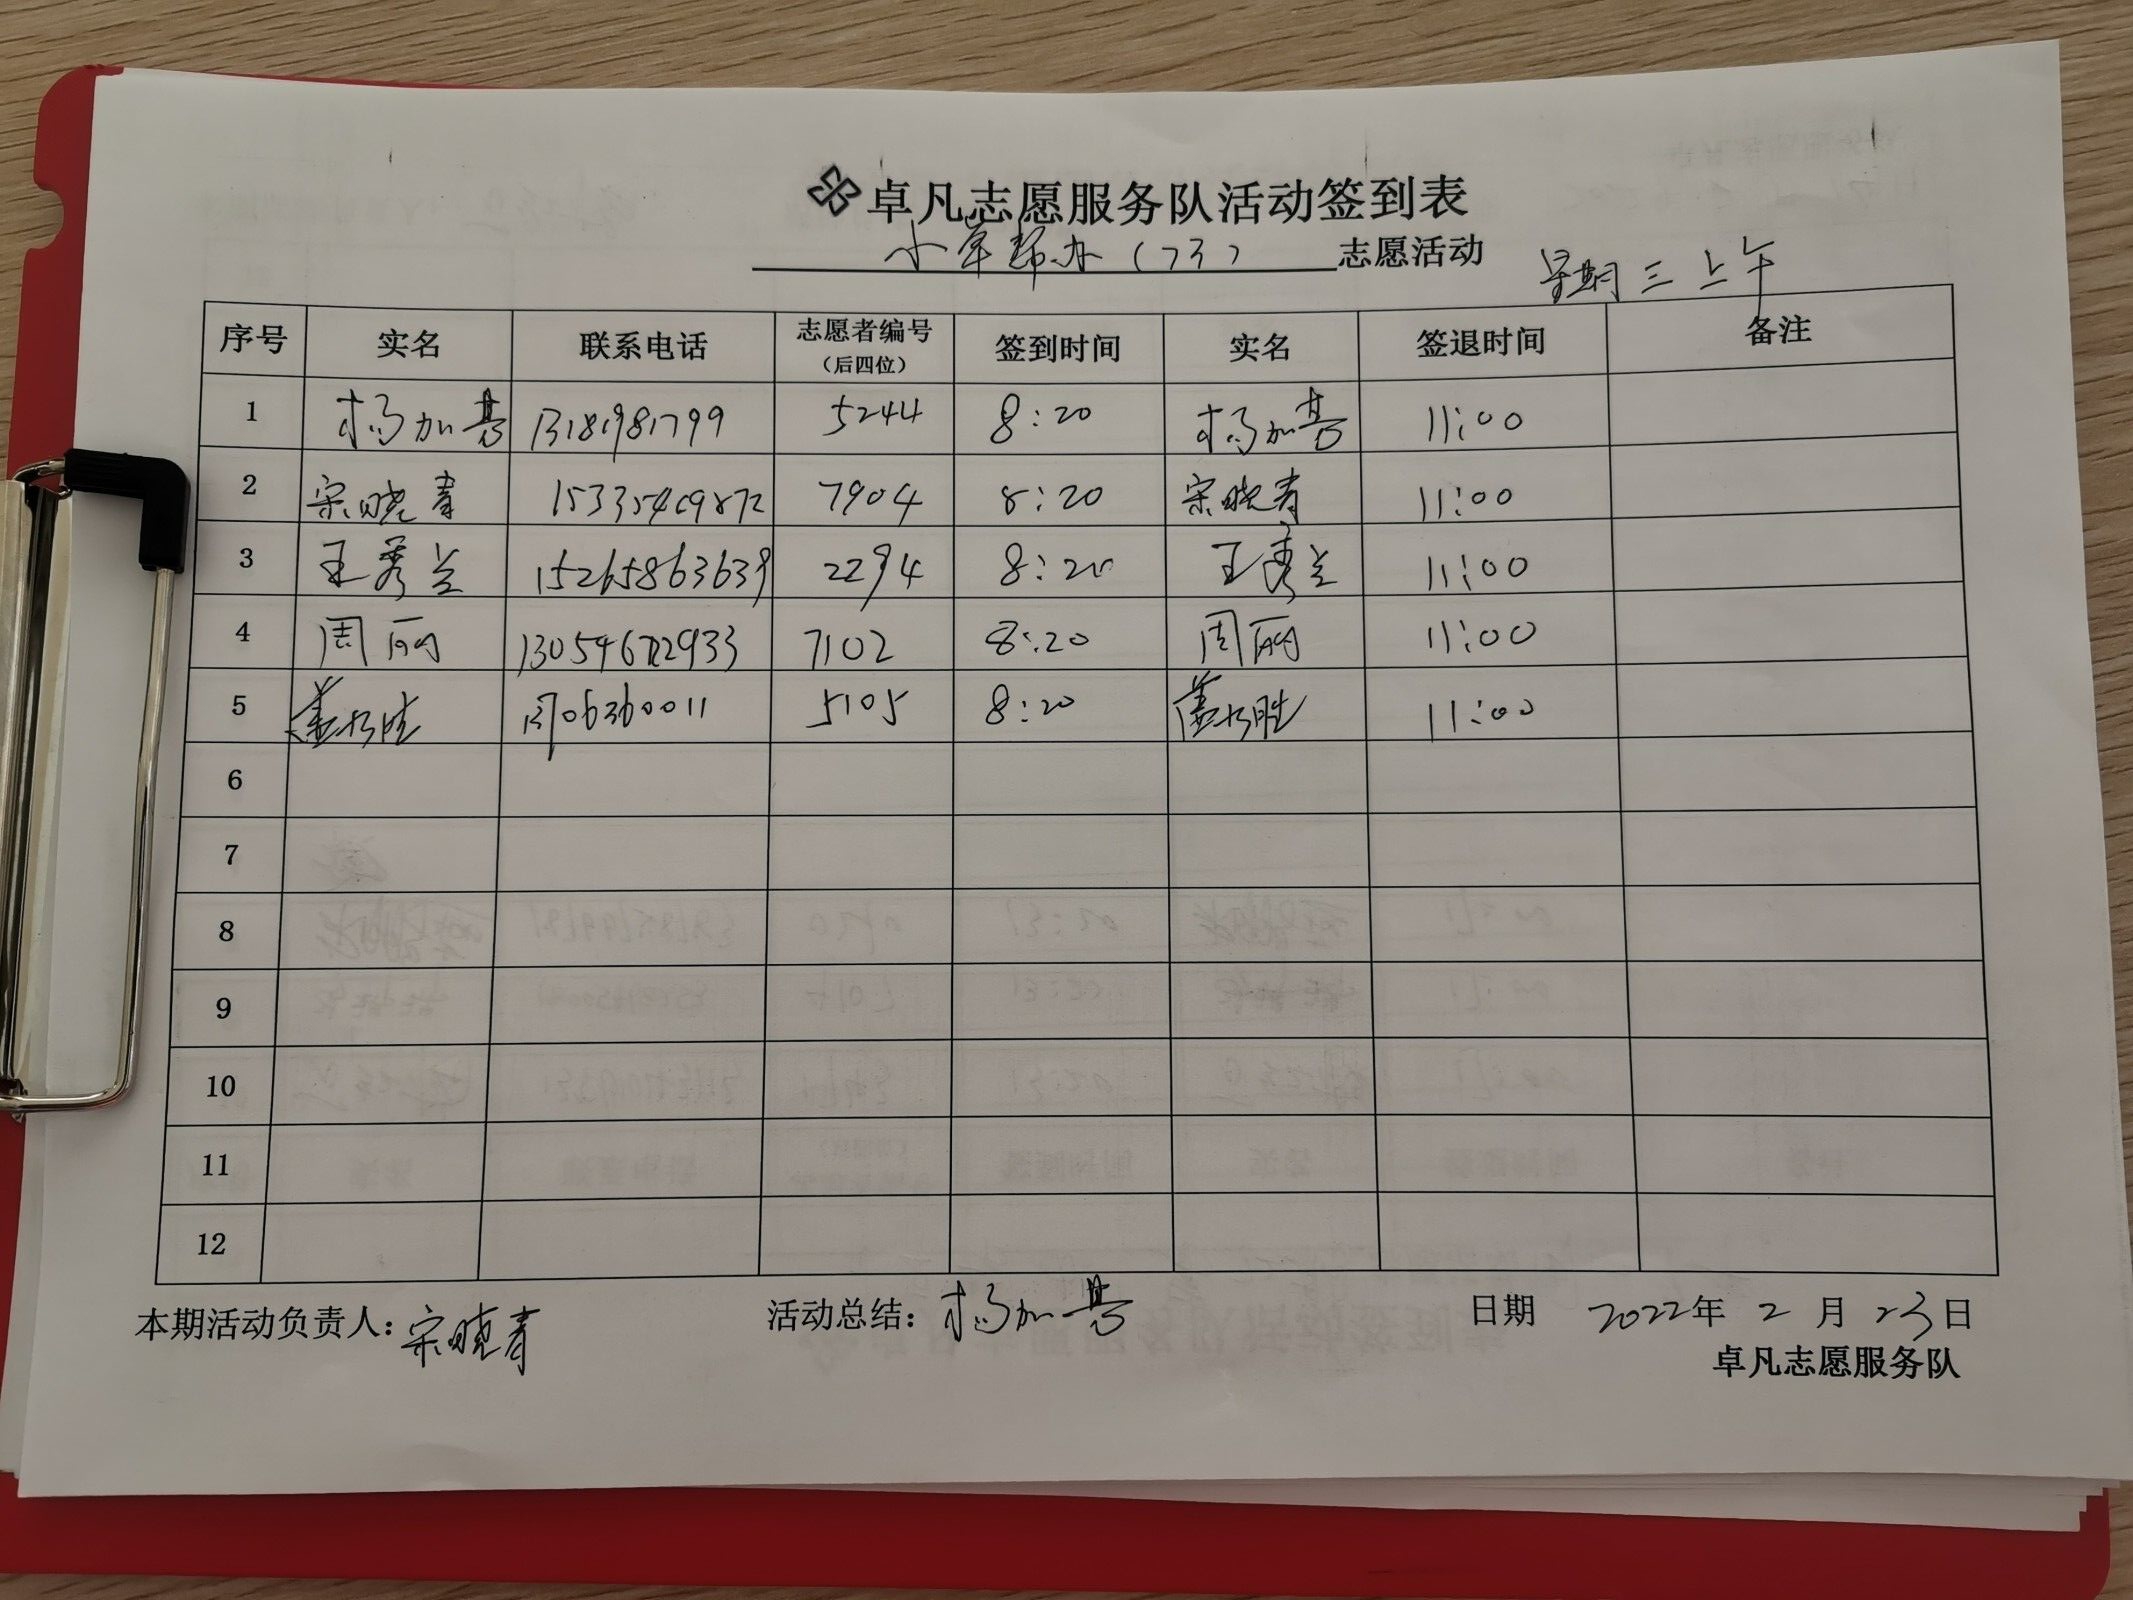 卓凡志愿服务队活动签到表
小军帮办（73） 志愿活动 星期三上午
序号 实名 联系电话 志愿者编号（后四位） 签到时间 实名 签退时间 备注
1 杨加喜 13181981799 5244 8:20 杨加喜 11:00
2 宋晓青 15335469872 7904 8:20 宋晓青 11:00
3 王秀兰 15265863639 2294 8:20 王秀兰 11:00
4 周丽 7102 8:20 周丽 11:00
5 5105 8:20 11:00
6
7
8
9
10
11
12
本期活动负责人：宋晓青 活动总结：杨加喜 日期 2022年2月23日
卓凡志愿服务队